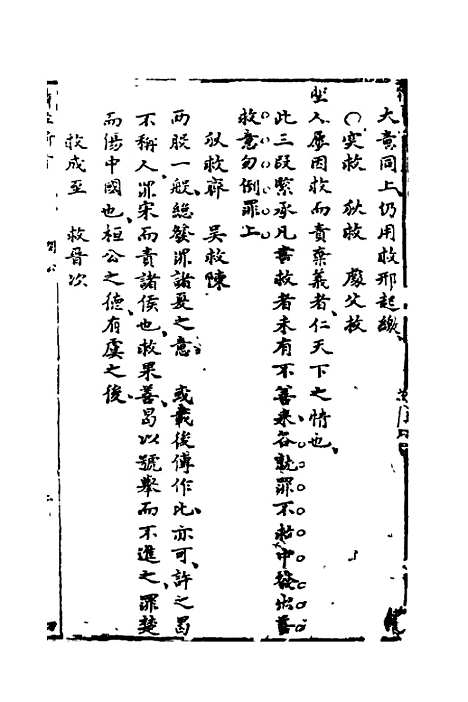 大意同上仍用救邢起繳
〇突救　狄救　處父救
坐人屈因救而責棄義者仁天下之情也
此三段緊承凡書救者未有不善來各就罪不救中發出善
救意勿倒罪上
狄救齊　吳救陳
兩股一般總發罪諸憂之意　或載後傳作比亦可許之曷
不稱人罪宋而責諸侯也救果善曷以號舉而不進之罪楚
而傷中國也桓公之德有虞之後
救成至　救晉次